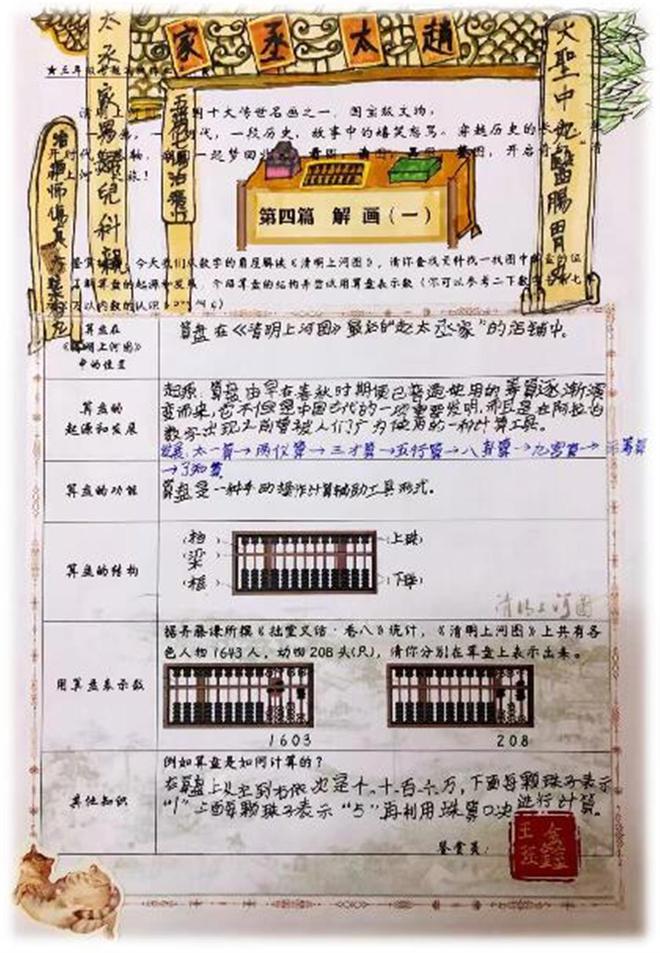 趙太丞家
大聖中丸醫腸胃丸
太丞家男婦兒科
五勞七傷
治
★三年级
十大传世名画之一,国宝级文物,
代,一段历史,故事中的嬉笑怒骂。穿越历史的
一起梦回北
第四篇 解 画(一)
今天我们从数学的角度解读《清明上河图》,请你查找资料找一找图中
了解算盘的起源和发展,介绍算盘的结构并尝试用算盘表示数(你可以参考二下数学
万以内数的认识
算盘在
《清明上河图》
中的位置
算盘在《清明上河图》最后的"赵太丞家"的店铺中。
算盘的
起源和发展
起源:算盘由早在春秋时期便已普遍使用的筹算逐渐演
变而来,它不但是中国古代的一项重要发明,而且是在阿拉伯
数字出现之前曾被人们广为使用的一种计算工具。
发展:太一算→两仪算→三才算→五行算→八卦算→九宫算→
→了知算
算盘的功能
算盘是一种手动操作计算辅助工具形式。
算盘的结构
(档
梁
(框
上珠
下珠
清明上河图
据齐藤谦所撰《拙堂文话·卷八》统计,《清明上河图》上共有各
色人物1643人,动物208头(只),请你分别在算盘上表示出来。
用算盘表示数
1603
208
其他知识
例如算盘是如何计算的?
在算盘上从左到右依次是个、十、百、千、万,下面每颗珠子表示
"1"上面每颗珠子表示"5"再利用珠算口诀进行计算。
鉴赏员: